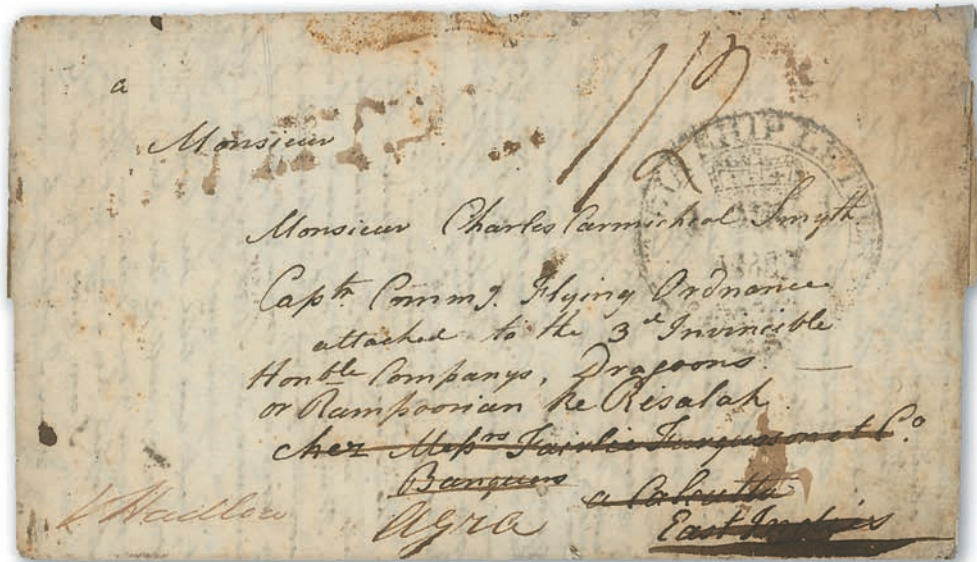 a
Monsieur
1/8
SHIP LETTER
Monsieur Charles Carmicheal Smyth
Captn Commg. Flying Ordnance
attached to the 3d Invincible
Honble Companys, Dragoons.
or Rampoorian ke Risalah
chez Messrs Fairlie Furgusson et Co.
Banquiers
a Calcutta
Agra
East Indies